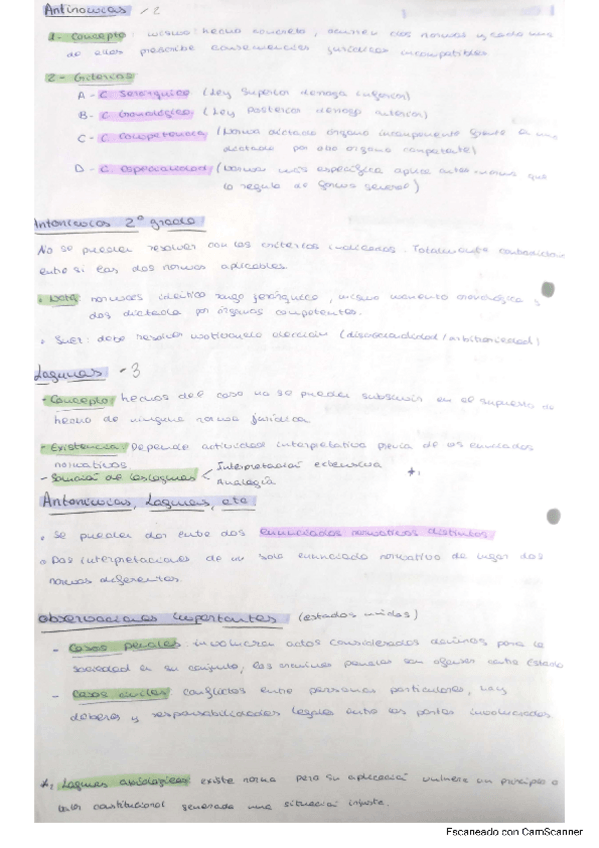 Antinomias -2
1- Concepto: mismo hecho concreto, ocurren dos normas y cada una
de ellas prescribe consecuencias jurídicas incompatibles
2- Criterios
A - C. Jerárquico (Ley superior deroga inferior)
B - C. Cronológico (Ley posterior deroga anterior)
C - C. Competencia (norma dictada órgano incompetente frente a una
dictada por otro órgano competente)
D - C. especialidad (norma más específica aplica antes norma que
lo regula de forma general)
Antonomias 2º grado
No se pueden resolver con los criterios indicados. Totalmente contradicen
entre sí las dos normas aplicables.
• Nota: normas idéntico rango jerárquico, mismo momento cronológico y
dos dictada por órganos competentes.
• Juez: debe resolver motivando elección (discrecionalidad/arbitrariedad)
Lagunas - 3
- Concepto: hechos del caso no se pueden subsumir en el supuesto de
hecho de ninguna norma jurídica.
- Existencia: Depende actividad interpretativa previa de los enunciados
normativos
- de las lagunas < Interpretación extensiva *1
Analogía
Antonomias, Lagunas, etc
• Se pueden dar entre dos enunciados normativos distintos
• Dos interpretaciones de un solo enunciado normativo da lugar dos
normas diferentes.
Observaciones importantes (estados unidos)
- Casos penales: involucra actos considerados dañinos para la
sociedad en su conjunto, los crímenes penales son ofensas contra Estado
- Casos civiles: conflictos entre personas particulares, hay
deberes y responsabilidades legales entre las partes involucradas
*1 Lagunas axiológicas: existe norma pero su aplicación vulnera un principio o
valor constitucional generando una situación injusta.
Escaneado con CamScanner